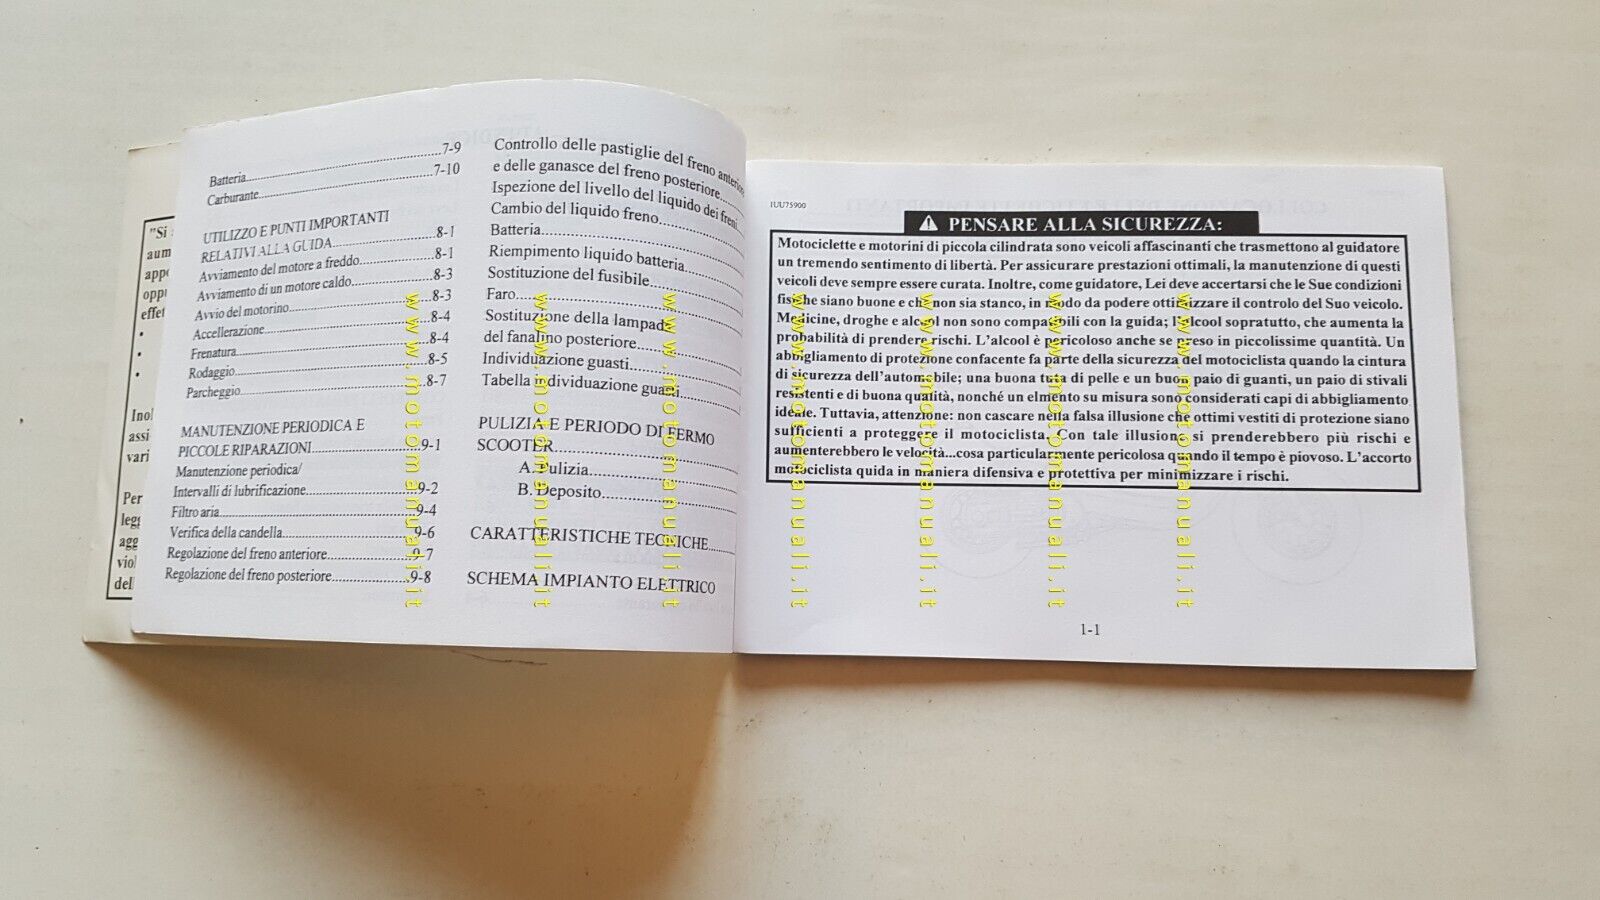 "Si
aum
appo
oppu
effet
•
•
•
Inol
assi
vari
Per
legg
agg
viol
dell
Batteria....................7-9
Carburante....................7-10
UTILIZZO E PUNTI IMPORTANTI
RELATIVI ALLA GUIDA....................8-1
Avviamento del motore a freddo....................8-1
Avviamento di un motore caldo....................8-3
Avvio del motorino....................8-3
Accellerazione....................8-4
Frenatura....................8-4
Rodaggio....................8-5
Parcheggio....................8-7
MANUTENZIONE PERIODICA E
PICCOLE RIPARAZIONI....................9-1
Manutenzione periodica/
Intervalli di lubrificazione....................9-2
Filtro aria....................9-4
Verifica della candella....................9-6
Regolazione del freno anteriore....................9-7
Regolazione del freno posteriore....................9-8
Controllo delle pastiglie del freno anteriore
e delle ganasce del freno posteriore....................
Ispezione del livello del liquido dei freni
Cambio del liquido freno....................
Batteria....................
Riempimento liquido batteria....................
Sostituzione del fusibile....................
Faro....................
Sostituzione della lampada
del fanalino posteriore....................
Individuazione guasti....................
Tabella individuazione guasti....................
PULIZIA E PERIODO DI FERMO
SCOOTER....................
A. Pulizia....................
B. Deposito....................
CARATTERISTICHE TECNICHE....................
SCHEMA IMPIANTO ELETTRICO
IUU75900
PENSARE ALLA SICUREZZA:
Motociclette e motorini di piccola cilindrata sono veicoli affascinanti che trasmettono al guidatore
un tremendo sentimento di libertà. Per assicurare prestazioni ottimali, la manutenzione di questi
veicoli deve sempre essere curata. Inoltre, come guidatore, Lei deve accertarsi che le Sue condizioni
fisiche siano buone e che non sia stanco, in modo da podere ottimizzare il controlo del Suo veicolo.
Medicine, droghe e alcool non sono compatibili con la guida; l'alcool sopratutto, che aumenta la
probabilità di prendere rischi. L'alcool è pericoloso anche se preso in piccolissime quantità. Un
abbigliamento di protezione confacente fa parte della sicurezza del motociclista quando la cintura
di sicurezza dell'automobile; una buona tuta di pelle e un buon paio di guanti, un paio di stivali
resistenti e di buona qualità, nonché un elmento su misura sono considerati capi di abbigliamento
ideale. Tuttavia, attenzione: non cascare nella falsa illusione che ottimi vestiti di protezione siano
sufficienti a proteggere il motociclista. Con tale illusione si prenderebbero più rischi e
aumenterebbero le velocità...cosa particolarmente pericolosa quando il tempo è piovoso. L'accorto
motociclista quida in maniera difensiva e protettiva per minimizzare i rischi.
1-1
www.motomanuali.it
www.motomanuali.it
www.motomanuali.it
www.motomanuali.it
www.motomanuali.it
www.motomanuali.it
www.motomanuali.it